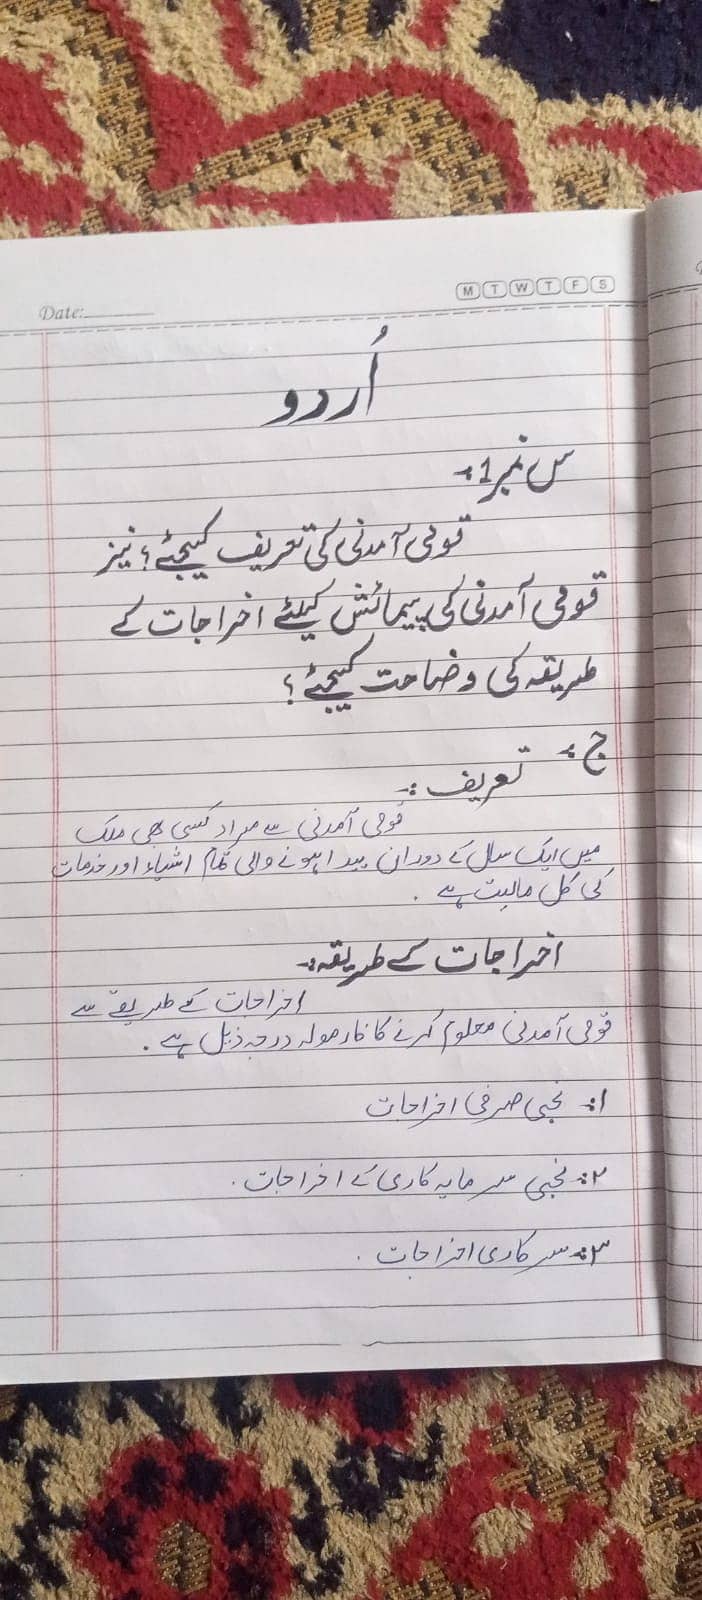 Date:
M T W T F S
اُردو
س نمبر 1:
قومی آمدنی کی تعریف کیجئے؟ نیز
قومی آمدنی کی پیمائش کیلئے اخراجات کے
طریقہ کی وضاحت کیجئے؟
ج: تعریف:
قومی آمدنی سے مراد کسی بھی ملک
میں ایک سال کے دوران پیدا ہونے والی تمام اشیاء اور خدمات
کی کل مالیت ہے .
اخراجات کے طریقہ:
اخراجات کے طریقے سے
قومی آمدنی معلوم کرنے کا فارمولہ درجہ ذیل ہے .
۱: نجی صرفی اخراجات
۲: نجی سرمایہ کاری کے اخراجات .
۳: سرکاری اخراجات .